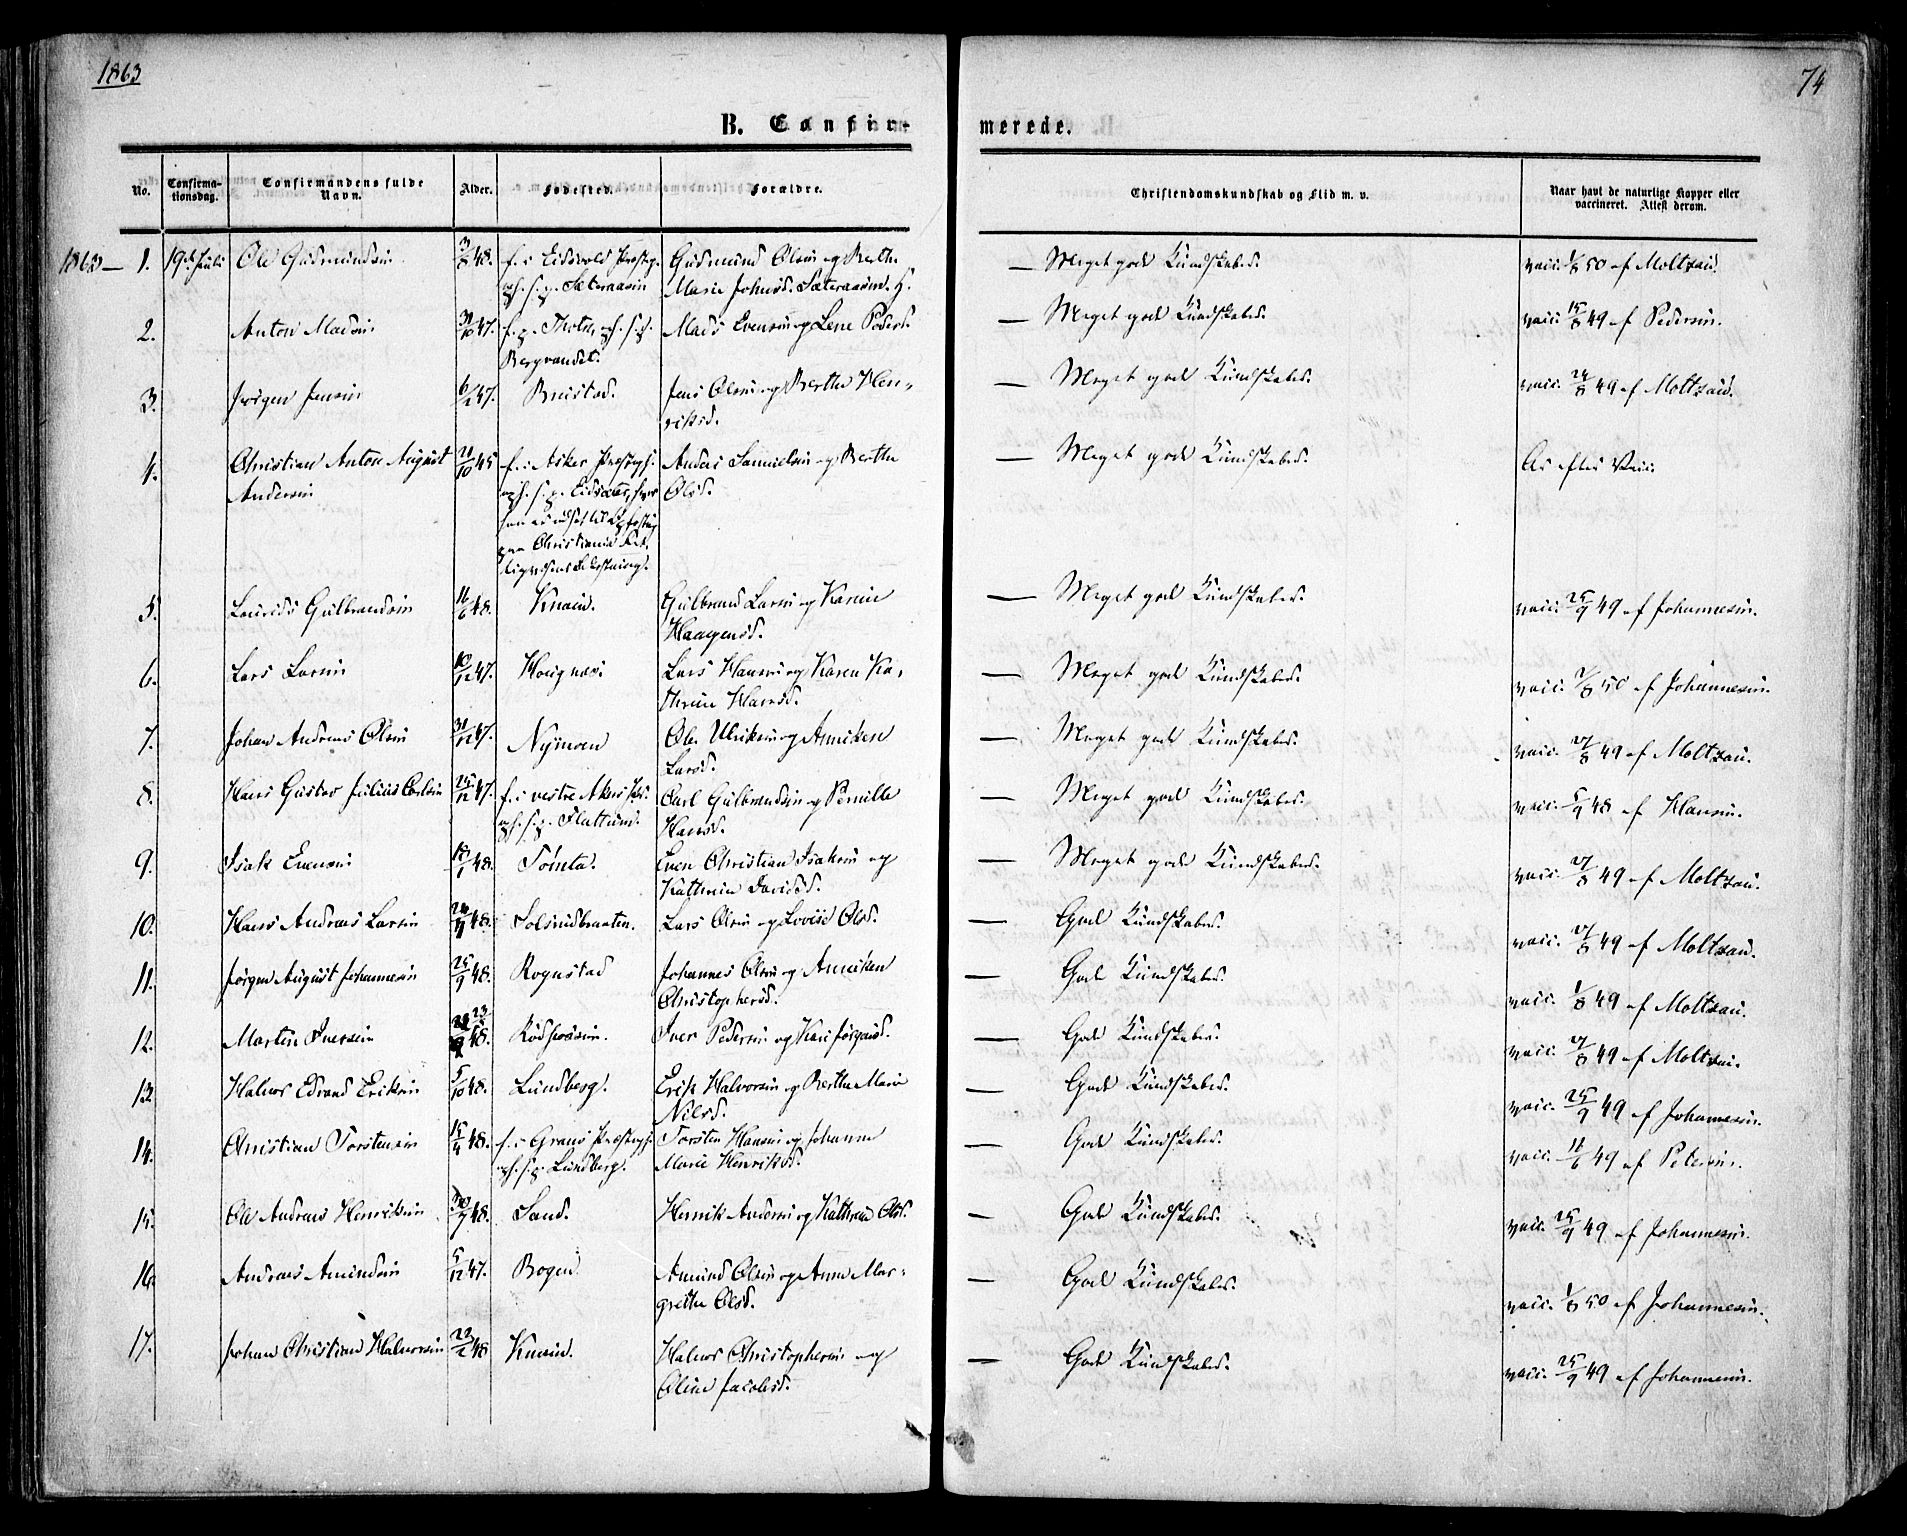 1863
74
B. Confir-
merede.
No.
Confirma-
tionsdag.
Confirmandens fulde
Navn.
Alder.
Fødested.
Forældre.
Christendomskundskab og Flid m. v.
Naar havt de naturlige Kopper eller
vaccineret. Attest derom.
1863 — 1. 19de Juli Ole Gudmundsen 48. f. i Eidsvold Præstg. Gudmund Olsen og Berthe — Meget god Kundskabs. vacc. 50 af Moltzau.
opf. p. Sæteraasen Marie Johnsd. Sæteraasen
2. Anton Madsen 47. Mads Evensen og Lene Pedersd. — Meget god Kundskabs. vacc. 15/8 49 af Pedersen.
Bergvandet.
3. Jørgen Jensen 47. Bruistad. Jens Olsen og Berthe Hen-
riksd. — Meget god Kundskabs. vacc. 24/8 49 af Moltzau.
4. Christian Anton August
Andersen 21/10 45 f. i Asker Præstgj. Anders Samuelsen og Berthe
Olsd. — Meget god Kundskabs. Ar efter Vacc.
paa Christiania
5. Lauritz Gulbrandsen 16/6 48. Knain. Gulbrand Larsen og Karen
Haagensd. — Meget god Kundskabs. vacc. 25/9 49 af Johannesen.
6. Lars Larsen 10/12 47. Hougnæs. Lars Hansen og Karen Ka-
thrine Hansd. — Meget god Kundskabs. vacc. 7/8 50 af Johannesen.
7. Johan Andreas Olsen 31/12 47. Nymoen Ole Ulriksen og Anniken
Larsd. — Meget god Kundskabs. vacc. 27/8 49 af Moltzau.
8. Hans Gustav Julius Carlsen 25/12 47. f. i vestre Akers Præs. Carl Gulbrandsen og Pernille
Hansd. — Meget god Kundskabs. vacc. 5/9 48 af Hansen.
opf. p. Flattum.
9. Isak Evensen 18/1 48. Tømte. Even Christian Isaksen og
Kathrine Davidsd. — Meget god Kundskabs. vacc. 27/8 49 af Moltzau.
10. Hans Andreas Larsen 48. Solsrudbraaten. Lars Olsen og Lovise Olsd. — God Kundskabs. vacc. 27/8 49 af Moltzau.
11. Jørgen August Johannesen 25/9 48. Rognstad Johannes Olsen og Anniken
Christophersd. — God Kundskabs. vacc. 1/8 49 af Moltzau.
12. Martin Iversen 48. Iver Pedersen og Kari Jørgensd. — God Kundskabs. vacc. 27/8 49 af Moltzau.
13. Halvor Edvard Eriksen 5/10 48. Lundberg. Erik Halvorsen og Berthe Marie
Nilsd. — God Kundskabs. vacc. 25/9 49 af Johannesen.
14. Christian Torstensen 15/4 48. f. i Grans Præstgj. Torsten Hansen og Johanne
opf. p. Lundberg. Marie Henriksd. — God Kundskabs. vacc. 11/6 49 af Petersen.
15. Ole Andreas Henriksen 30/7 48. Sand. Henrik Andersen og Kathrine Olsd. — God Kundskabs. vacc. 25/9 49 af Johannesen.
16. Andreas Amundsen 5/12 47. Bogen Amund Olsen og Anne Mar-
grethe Olsd. — God Kundskabs. vacc. 1/8 50 af Johannesen.
17. Johan Christian Halvorsen 23/2 48 Knain. Halvor Christophersen og
Oline Jacobsd. — God Kundskabs. vacc. 25/9 49 af Johannesen.